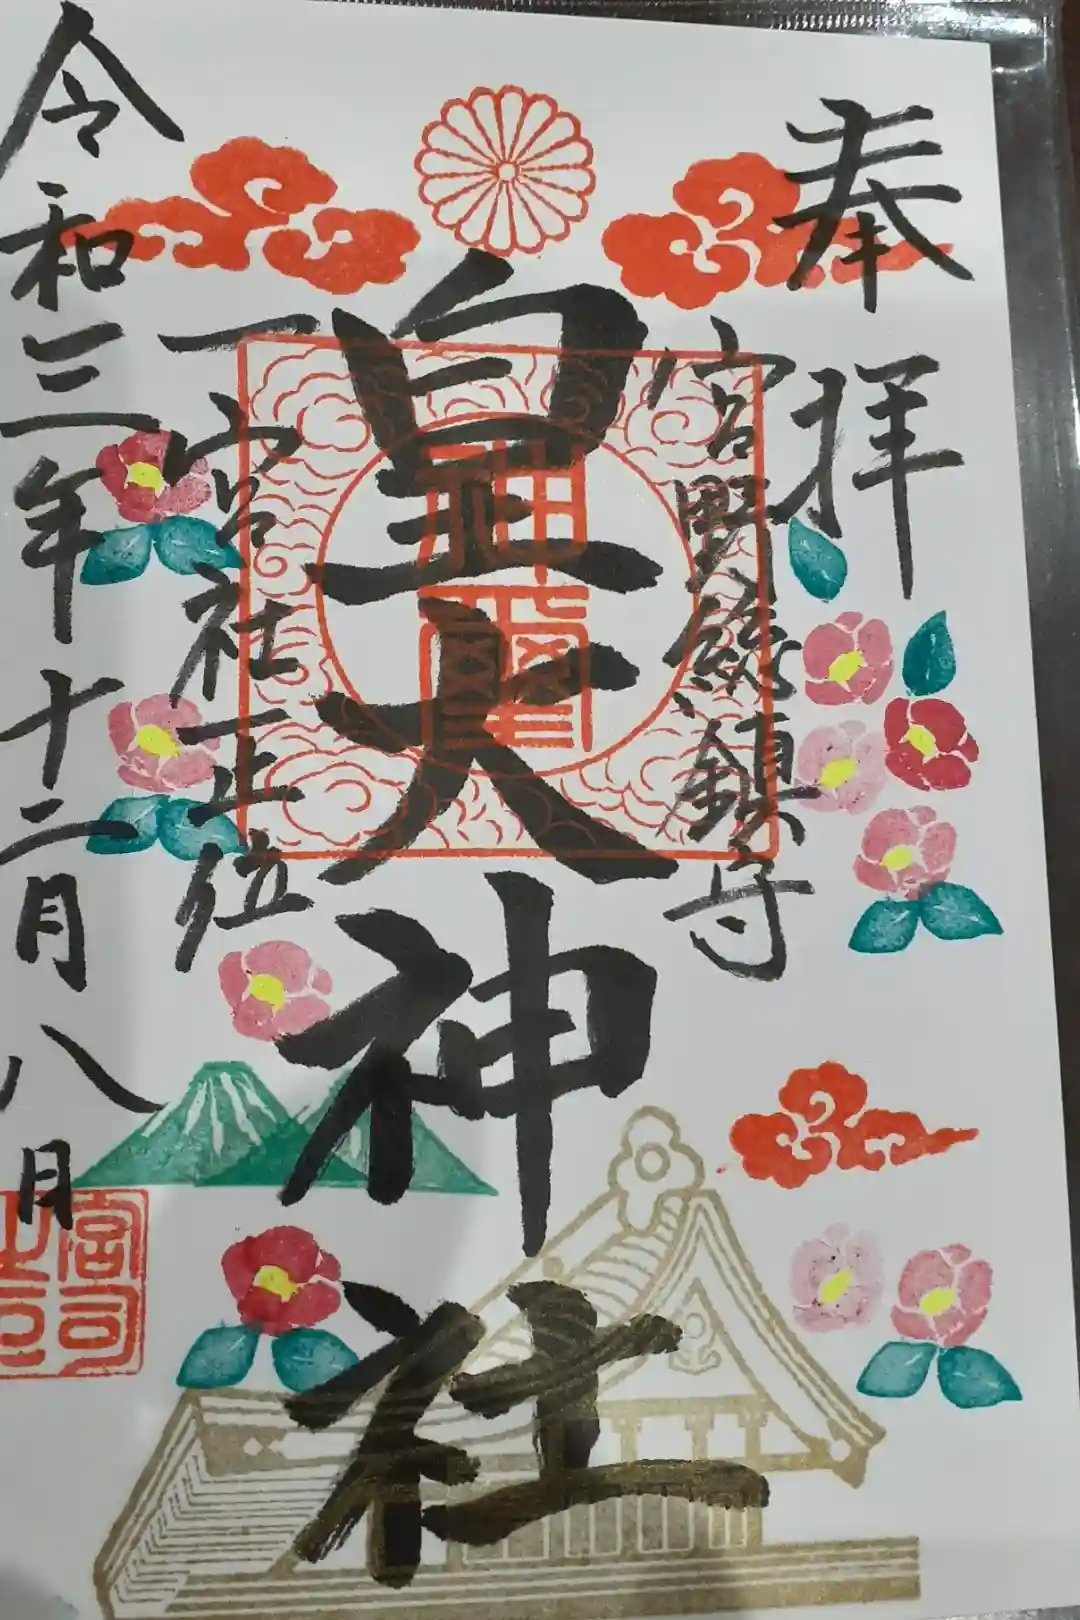 奉拝
宮野総鎮守
皇大神社
一宮社正位
令和三年十二月八日
神璽
宮司之印